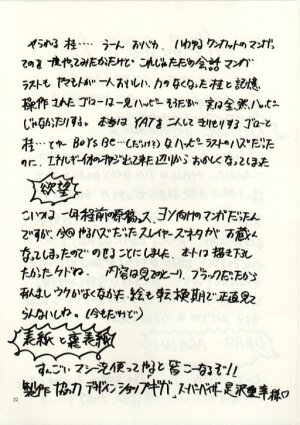 やられる 桂‥‥ うーん おバカ、いわゆる ワンカットのマンガっ
てのを一度やってみたかったけど、これじゃただの会話マンガ
ラストも ヤマモトが一人おいしい、力のなくなった桂と記憶
操作された ゴローは一見ハッピーそうだが 実は全然ハッピー
じゃなかったりする。本当は YATを こんてきりもりするゴローと
桂…とゆー BoyS BE…(だっけ?)なハッピーラストのハズだった
のに、エネルギー体のオヤジとして来た辺りから おかしくなってしまった
欲望
こいつは 一年程前の原稿っス、ヨソ向けのマンガだったん
ですが、今回やるハズだったスレイヤーズネタが お蔵入
なってしまったので のせることにしました、ホントは描き下ろし
たかったケドね、 内容は見てのとーり、ブラックだったから
あんましウケがよくなかった 絵も転換期で正直見て
らんないしね。(今もだけど)
表紙と裏表紙
すっごいマシン使ってやると 皆こーなるぞ!!
製作協力 デザインショップ「ギガ」 スーパーバイザー 足沢重幸様♡
22